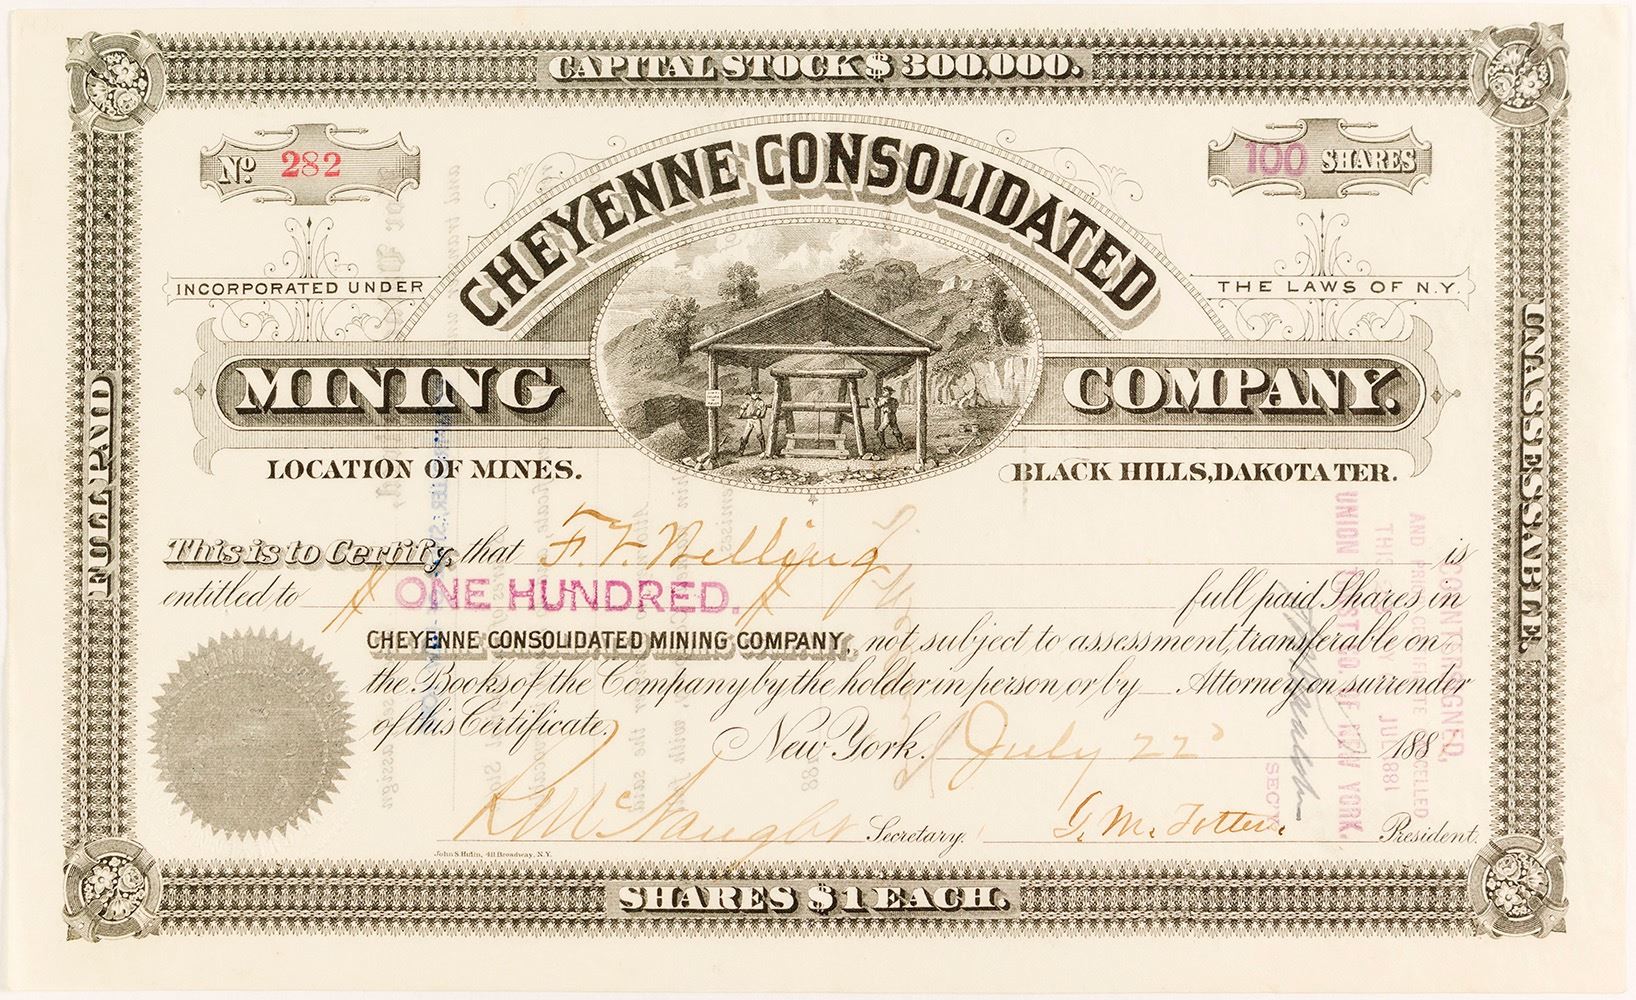 CAPITAL STOCK $ 300,000.
No. 282
100 SHARES
CHEYENNE CONSOLIDATED
INCORPORATED UNDER
THE LAWS OF N.Y.
MINING COMPANY.
LOCATION OF MINES.
BLACK HILLS, DAKOTA TER.
FULL PAID
UNASSESSABLE.
This is to Certify, that F. V. Nelling is
entitled to ONE HUNDRED. full paid Shares in
CHEYENNE CONSOLIDATED MINING COMPANY, not subject to assessment, transferable on
the Books of the Company by the holder in person or by Attorney on surrender
of this Certificate.
New York. July 22d 188
R McNaught Secretary. G. M. Totten President.
John S. Hulin, 411 Broadway, N.Y.
SHARES $1 EACH.
COUNTERSIGNED,
AND PRIOR CERTIFICATE CANCELLED
THIS DAY JUL 1881
UNION TRUST CO. OF NEW YORK.
SECY.